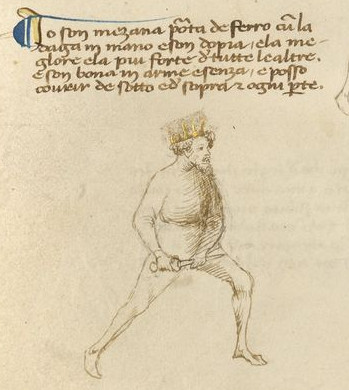 Io son mezana porta de ferro cu la
daga in mano e son dopia, e la me-
glore e la piu forte d tutte le altre.
E son bona in arme e senza, e posso
courir de sotto ed sopra e ogni pte.